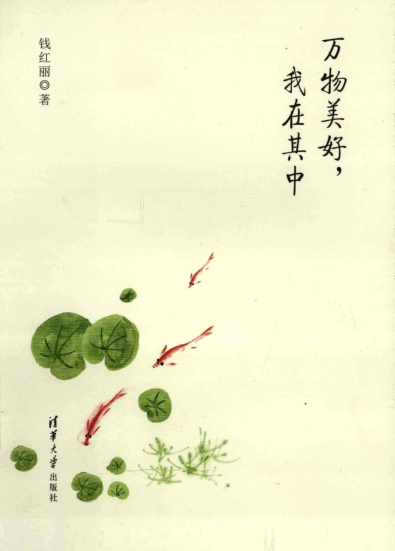 万物美好，
我在其中
钱红丽◎著
清华大学出版社